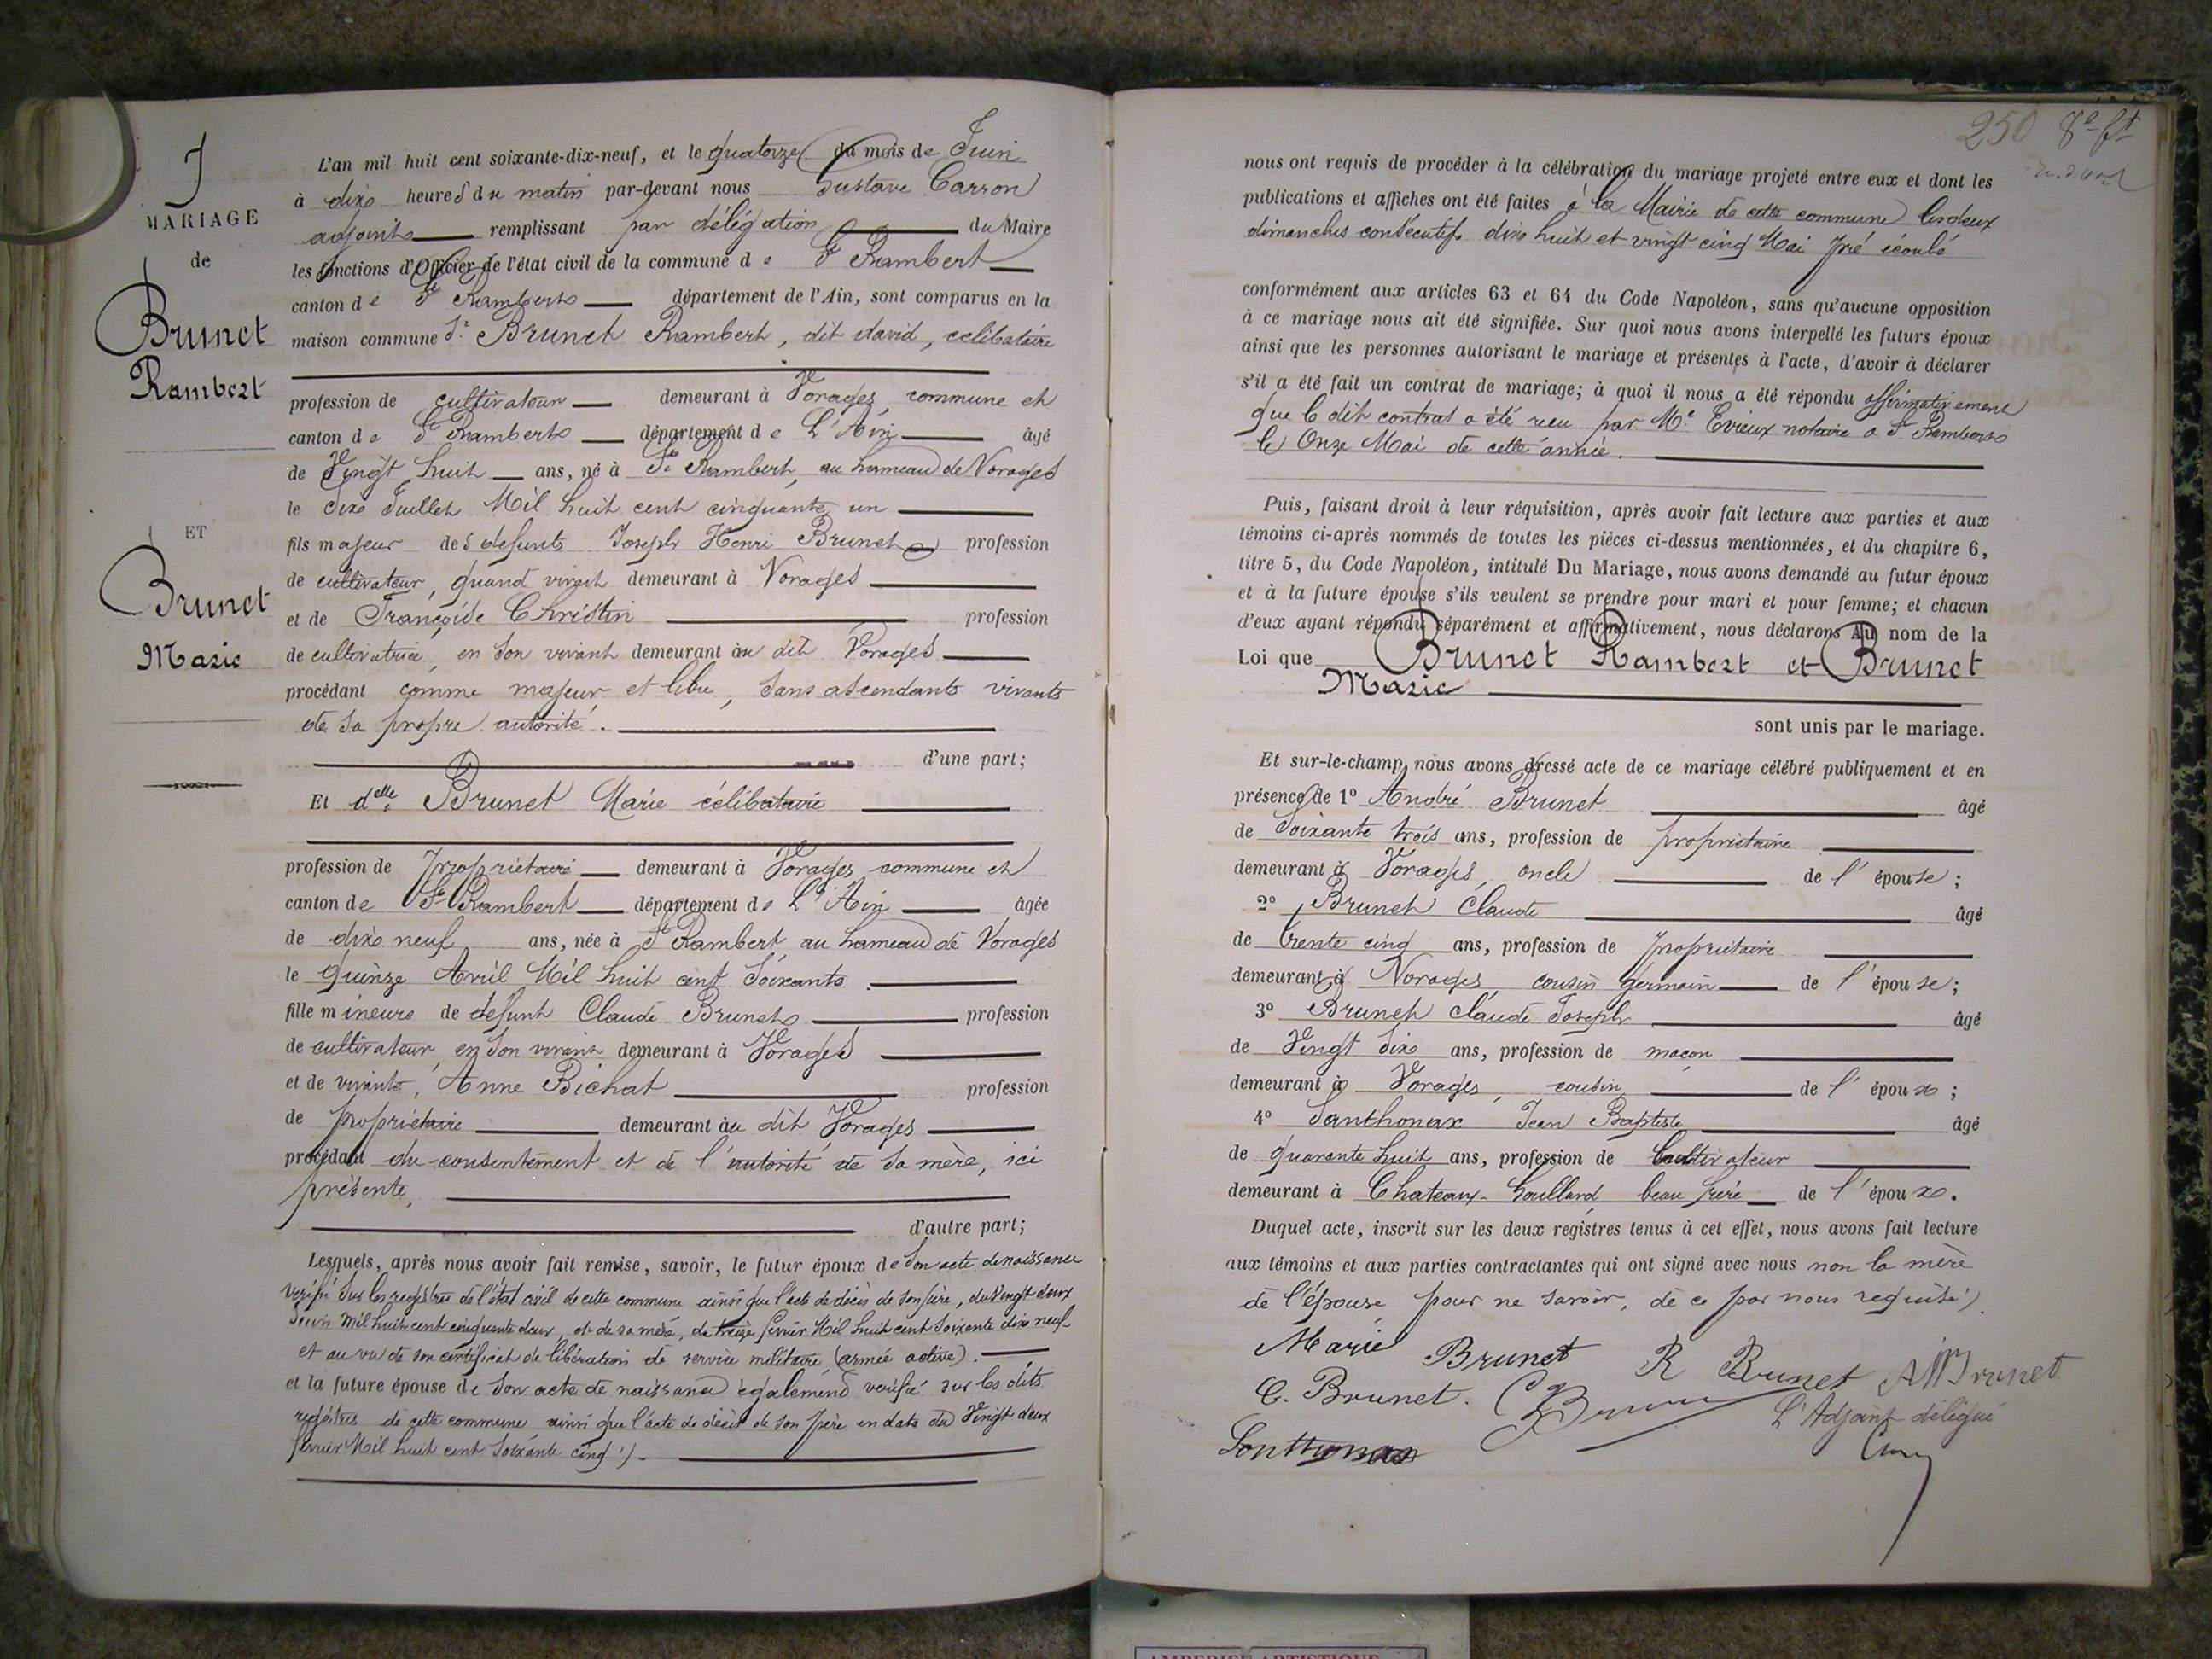 MARIAGE
de
Brunet
Rambert
ET
Brunet
Marie
L'an mil huit cent soixante-dix-neuf, et le quatorze du mois de Juin
à dix heures du matin par-devant nous Gustave Carron
adjoint remplissant par délégation du Maire
les fonctions d'Officier de l'état civil de la commune de St Rambert
canton de St Rambert département de l'Ain, sont comparus en la
maison commune Sr Brunet Rambert, dit david, célibataire
profession de cultivateur demeurant à Vorages, commune et
canton de St Rambert département de L'Ain âgé
de Vingt huit ans, né à St Rambert, au hameau de Vorages
le dix Juillet Mil huit cent cinquante un
fils majeur des defunts Joseph Henri Brunet profession
de cultivateur, quand vivait demeurant à Vorages
et de Françoise Christin profession
de cultivatrice, en son vivant demeurant au dit Vorages
procédant comme majeur et libre, sans ascendants vivants
de sa propre autorité.
d'une part;
Et delle Brunet Marie célibataire
profession de propriétaire demeurant à Vorages, commune et
canton de St Rambert département de L'Ain âgée
de dix neuf ans, née à St Rambert, au hameau de Vorages
le quinze Avril Mil huit cent soixante.
fille mineure de défunt Claude Brunet profession
de cultivateur, en son vivant demeurant à Vorages
et de vivante, Anne Bichat profession
de propriétaire demeurant au dit Vorages
procédant du consentement et de l'autorité de sa mère, ici
présente,
d'autre part;
Lesquels, après nous avoir fait remise, savoir, le futur époux de son acte de naissance
vérifié sur les registres de l'état civil de cette commune ainsi que l'acte de décès de son père, du Vingt deux
Juin Mil huit cent cinquante deux, et de sa mère, du treize février Mil huit cent soixante dix neuf
et au vu de son certificat de libération de service militaire (armée active).
et la future épouse de son acte de naissance également vérifié sur les dits
registres de cette commune ainsi que l'acte de décès de son père en date du Vingt deux
février Mil huit cent soixante cinq.
250 8e ft
nous ont requis de procéder à la célébration du mariage projeté entre eux et dont les
publications et affiches ont été faites à la Mairie de cette commune les deux
dimanches consécutifs dix huit et vingt cinq Mai pré écoulé
conformément aux articles 63 et 64 du Code Napoléon, sans qu'aucune opposition
à ce mariage nous ait été signifiée. Sur quoi nous avons interpellé les futurs époux
ainsi que les personnes autorisant le mariage et présentes à l'acte, d'avoir à déclarer
s'il a été fait un contrat de mariage; à quoi il nous a été répondu affirmativement
que le dit contrat a été reçu par Me Evieux notaire a St Rambert
le Onze Mai de cette année.
Puis, faisant droit à leur réquisition, après avoir fait lecture aux parties et aux
témoins ci-après nommés de toutes les pièces ci-dessus mentionnées, et du chapitre 6,
titre 5, du Code Napoléon, intitulé Du Mariage, nous avons demandé au futur époux
et à la future épouse s'ils veulent se prendre pour mari et pour femme; et chacun
d'eux ayant répondu séparément et affirmativement, nous déclarons Au nom de la
Loi que Brunet Rambert et Brunet
Marie
sont unis par le mariage.
Et sur-le-champ, nous avons dressé acte de ce mariage célébré publiquement et en
présence de 1º André Brunet âgé
de Soixante trois ans, profession de propriétaire
demeurant à Vorages, oncle de l'épouse;
2º Brunet Claude âgé
de trente cinq ans, profession de propriétaire
demeurant à Vorages, cousin germain de l'épouse;
3º Brunet Claude Joseph âgé
de Vingt six ans, profession de maçon
demeurant à Vorages, cousin de l'époux;
4º Santhonax Jean Baptiste âgé
de quarante huit ans, profession de Cultivateur
demeurant à Chateau-Gaillard, beau frère de l'époux.
Duquel acte, inscrit sur les deux registres tenus à cet effet, nous avons fait lecture
aux témoins et aux parties contractantes qui ont signé avec nous non la mère
de l'épouse, pour ne savoir, de ce par nous requise.
Marie Brunet R Brunet A Brunet
C. Brunet. C Brunet L'Adjoint délégué
Sonthonax
AMBERIEU ARTISTIQUE